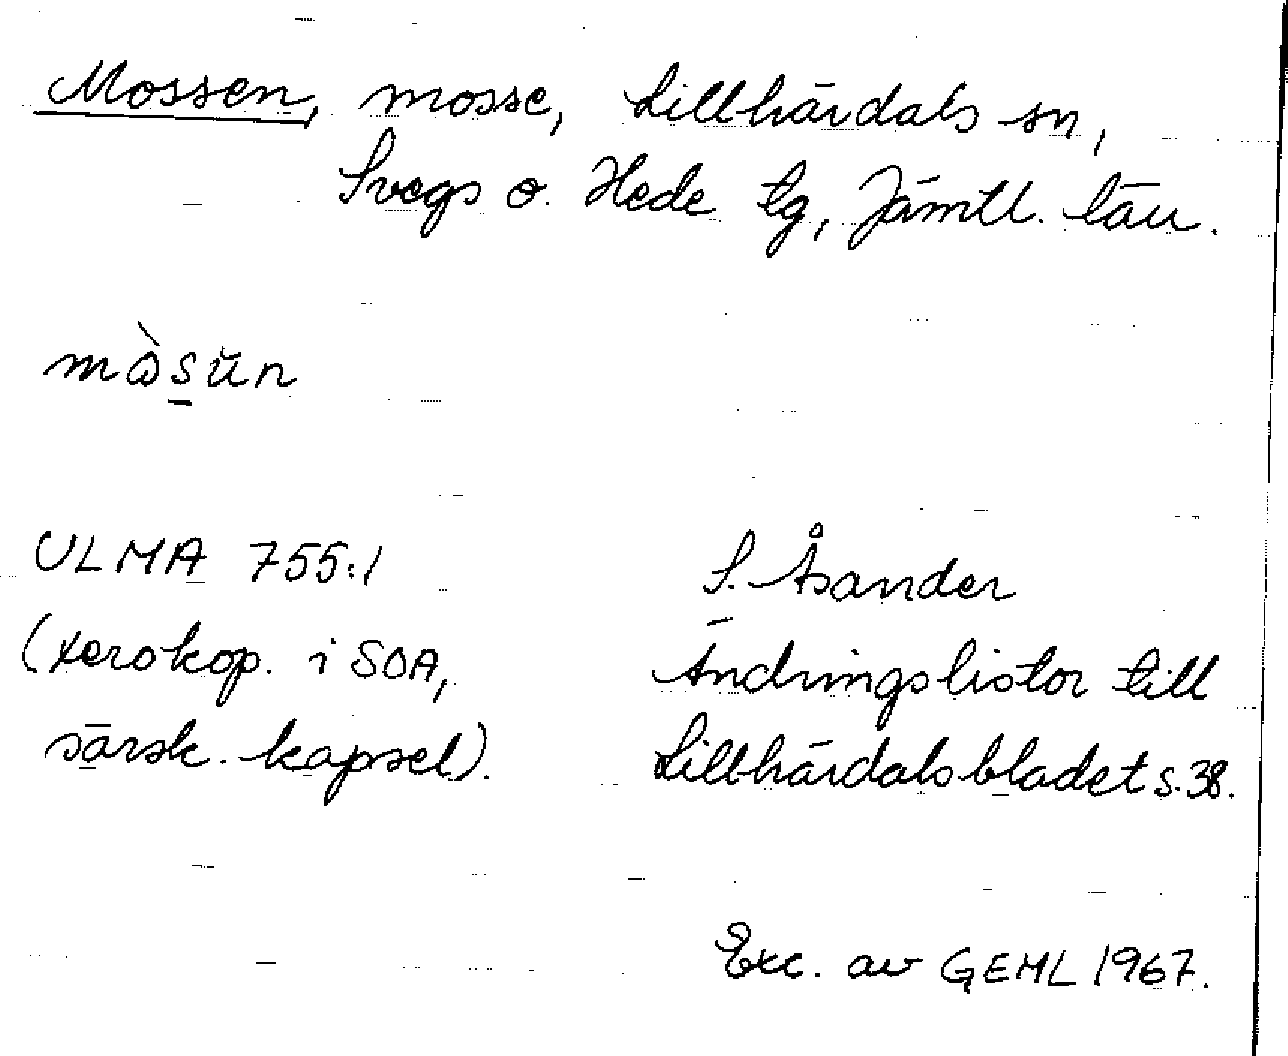 Mossen, mosse, Lillhärdals sn,
Svegs o. Hede tg, Jämtl. län.
mɷ̀s̲ŭn
ULMA 755:1
(xerokop. i SOA,
särsk. kapsel).
S. Åsander
Ändringslistor till
Lillhärdalsbladet s. 38.
Exc. av GEHL 1967.